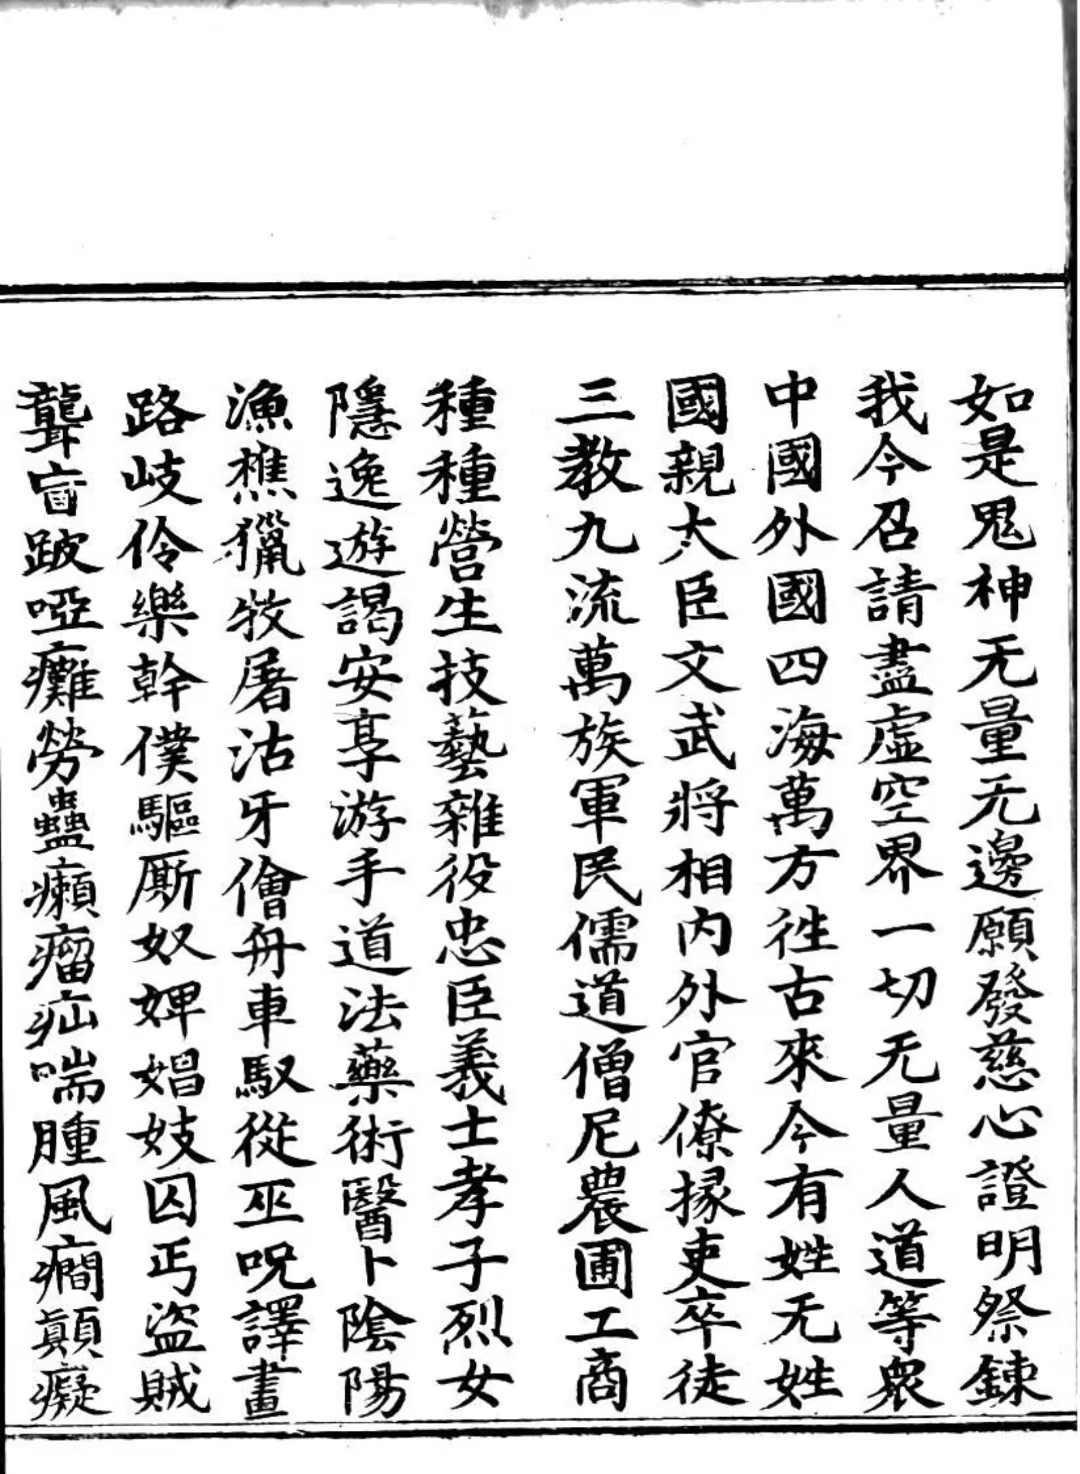 如是鬼神无量无邊願發慈心證明祭鍊
我今召請盡虛空界一切无量人道等衆
中國外國四海萬方徃古來今有姓无姓
國親大臣文武將相內外官僚掾吏卒徒
三教九流萬族軍民儒道僧尼農圃工商
種種營生技藝雜役忠臣義士孝子烈女
隱逸遊謁安享游手道法藥術醫卜陰陽
漁樵獵牧屠沽牙儈舟車馭從巫呪譯畫
路岐伶樂幹僕驅厮奴婢娼妓囚丐盜賊
聾盲跛啞癱勞蠱癩瘤疝喘腫風癇顛癡